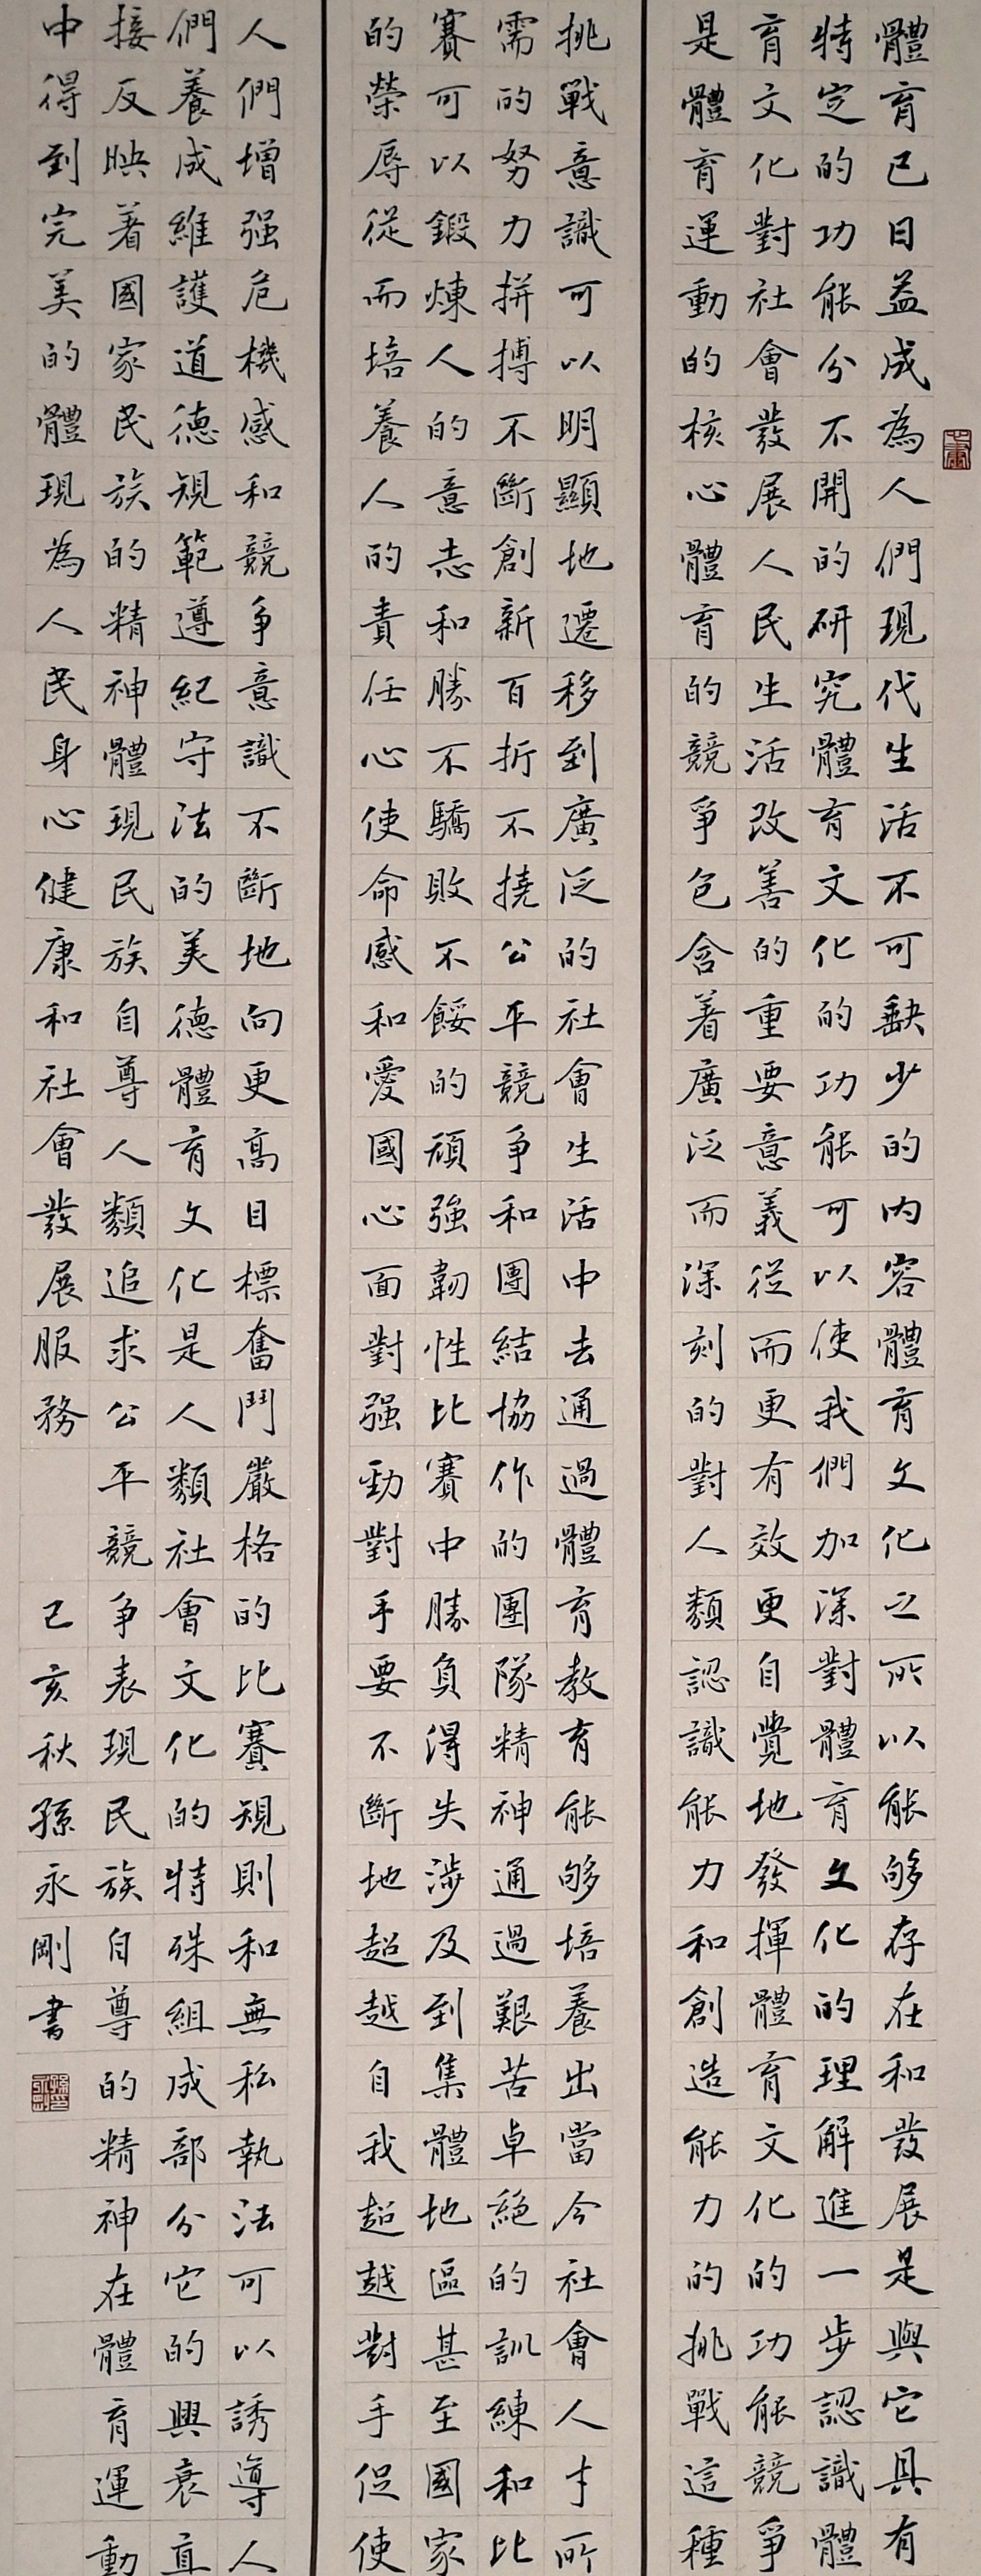 體育已日益成為人們現代生活不可缺少的内容體育文化之所以能够存在和發展是與它具有
特定的功能分不開的研究體育文化的功能可以使我們加深對體育文化的理解進一步認識體
育文化對社會發展人民生活改善的重要意義從而更有效更自覺地發揮體育文化的功能競爭
是體育運動的核心體育的競爭包含着廣泛而深刻的對人類認識能力和創造能力的挑戰這種
挑戰意識可以明顯地遷移到廣泛的社會生活中去通過體育教育能够培養出當今社會人才所
需的努力拼搏不斷創新百折不撓公平競争和團結協作的團隊精神通過艱苦卓絕的訓練和比
賽可以鍛煉人的意志和勝不驕敗不餒的頑強韌性比賽中勝負得失涉及到集體地區甚至國家
的榮辱從而培養人的責任心使命感和愛國心面對强勁對手要不斷地超越自我超越對手促使
人們增强危機感和競争意識不斷地向更高目標奮鬥嚴格的比賽規則和無私執法可以誘導人
們養成維護道德規範遵紀守法的美德體育文化是人類社會文化的特殊組成部分它的興衰直
接反映着國家民族的精神體現民族自尊人類追求公平競争表現民族自尊的精神在體育運動
中得到完美的體現為人民身心健康和社會發展服務
己亥秋孫永剛書